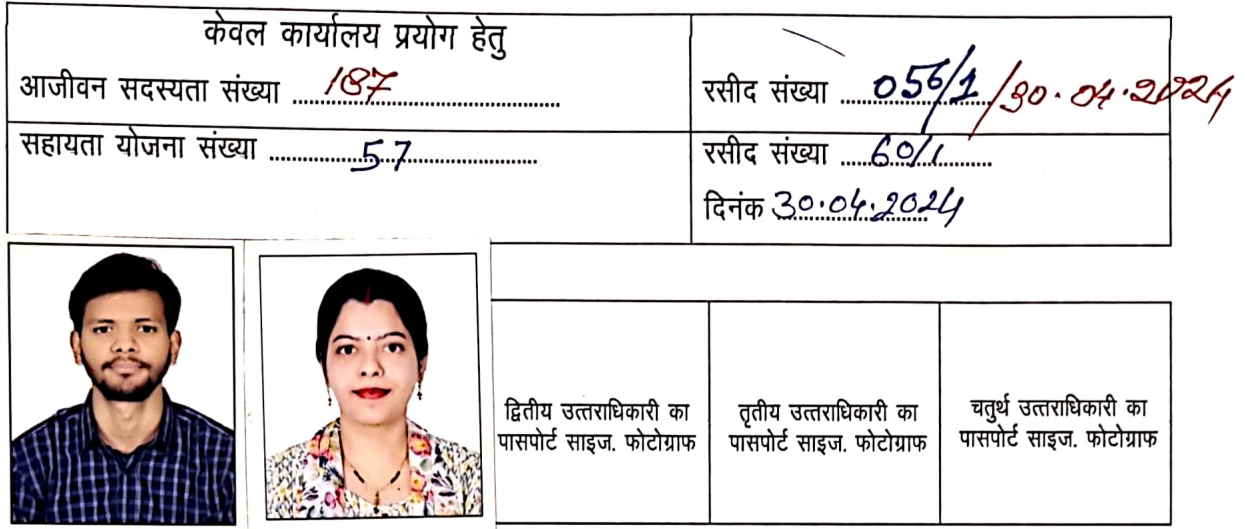 केवल कार्यालय प्रयोग हेतु
आजीवन सदस्यता संख्या 187
रसीद संख्या 056/1/30.04.2024
सहायता योजना संख्या 57
रसीद संख्या 60/1
दिनंक 30.04.2024
द्वितीय उत्तराधिकारी का
पासपोर्ट साइज. फोटोग्राफ
तृतीय उत्तराधिकारी का
पासपोर्ट साइज. फोटोग्राफ
चतुर्थ उत्तराधिकारी का
पासपोर्ट साइज. फोटोग्राफ